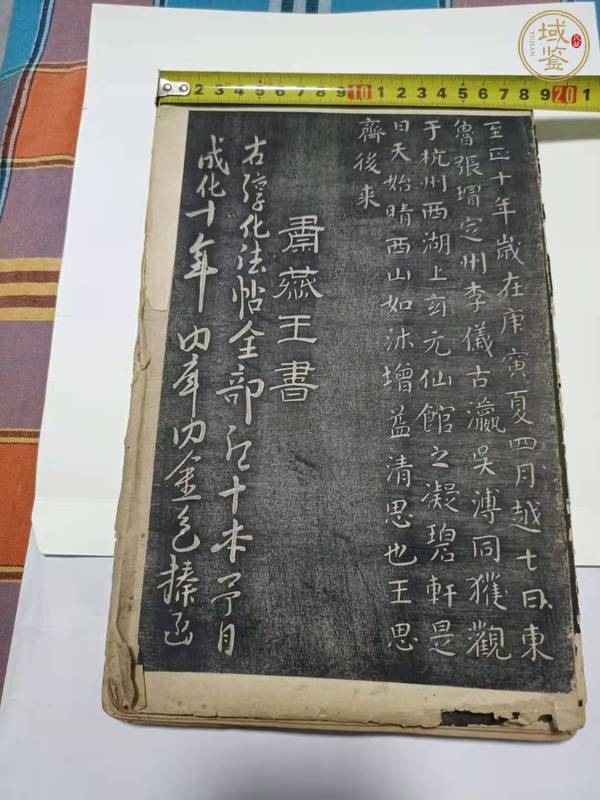 域鉴
YUJIAN
2 3 4 5 6 7 8 9 10 1 2 3 4 5 6 7 8 9 20 1
至正十年歲在庚寅夏四月越七日東
魯張瑁定州李儀古瀛吳溥同獲觀
于杭州西湖上玄元仙館之凝碧軒是
日天始晴西山如沐增益清思也王思
齊後來
肅燕王書
古淳化法帖全部十本月
成化十年內庫內金包函